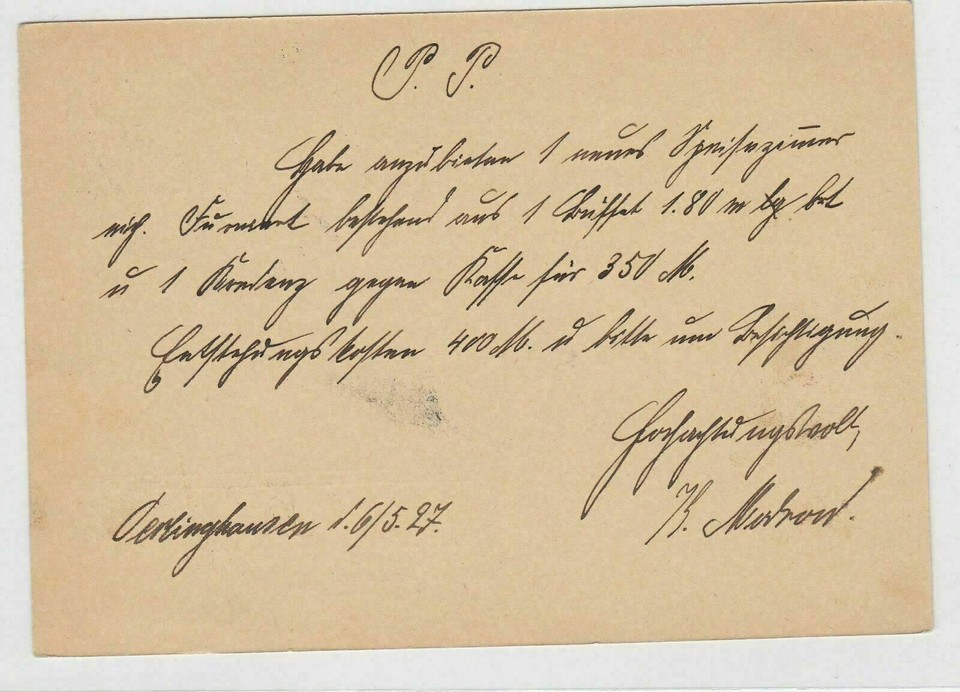 P. P.
Habe anzubieten 1 neues Speisezimmer
eich. Fournert bestehend aus 1 Büffet 1.80 m lg
u 1 Kredenz gegen Kasse für 350 M.
Entstehungskosten 400 M. u bitte um Besichtigung.
Hochachtungsvoll,
K. Modrow.
Oerlinghausen d. 6/5.27.